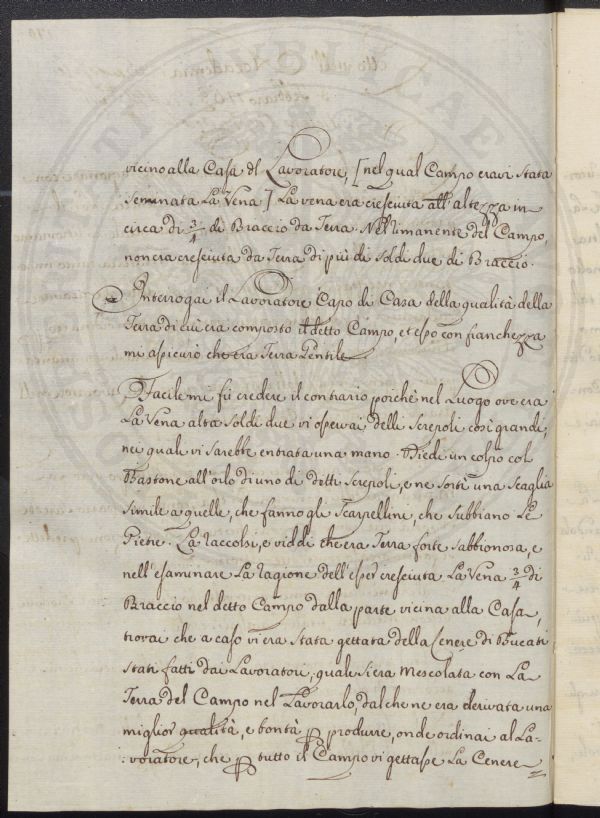 vicino alla Casa del Lavoratore, [nel qual Campo eravi stata
seminata La Vena] La vena era cresciuta all'altezza in=
circa di 3/4 di Braccio da Terra. Nel rimanente del Campo,
non era cresciuta da Terra di più di soldi due di Braccio.
Interrogai il Lavoratore Capo di Casa della qualità della
Terra di cui era composto il detto Campo, et esso con franchezza
mi assicurò che era Terra Gentile
Facile mi fù credere il contrario poichè nel Luogo ove era
La Vena alta soldi due vi osservai delli screpoli così grandi,
nei quale vi sarebbe entrata una mano. Diedi un colpo col
Bastone all'orlo di uno di detti screpoli, e ne sortì una scaglia
simile a quelle, che fanno gli scarpelline, che subbiano Le
Pietre. La raccolsi, e viddi che era Terra forte sabbionosa, e
nell'esaminare La ragione dell'esser cresciuta La Vena 3/4 di
Braccio nel detto Campo dalla parte vicina alla Casa,
trovai che a caso vi era stata gettata della Cenere di Bucati
stati fatti dai Lavoratori, quale si era mescolata con La
Terra del Campo nel Lavorarlo, dal che ne era derivata una
miglior qualità, e bontà p produrre, onde ordinai al La=
:voratore, che p tutto il Campo vi gettasse La Cenere